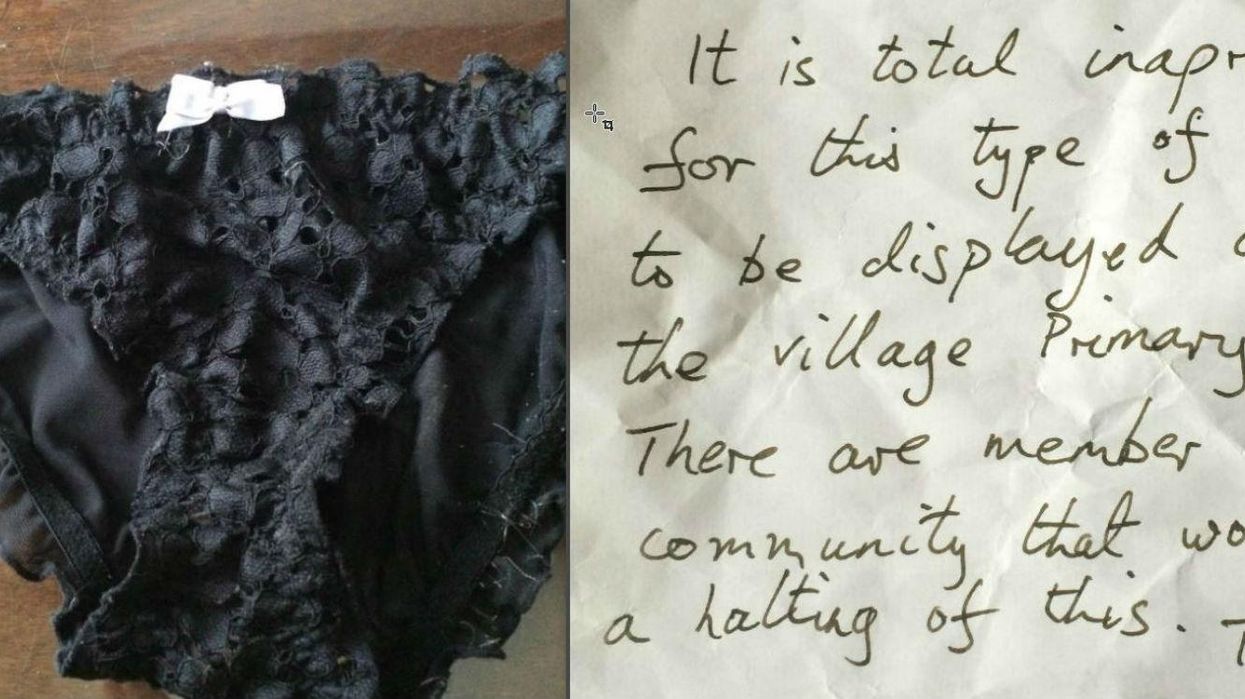 It is total inapr
for this type of
to be displayed
the village Primary
There are member
community that wo
a halting of this. T